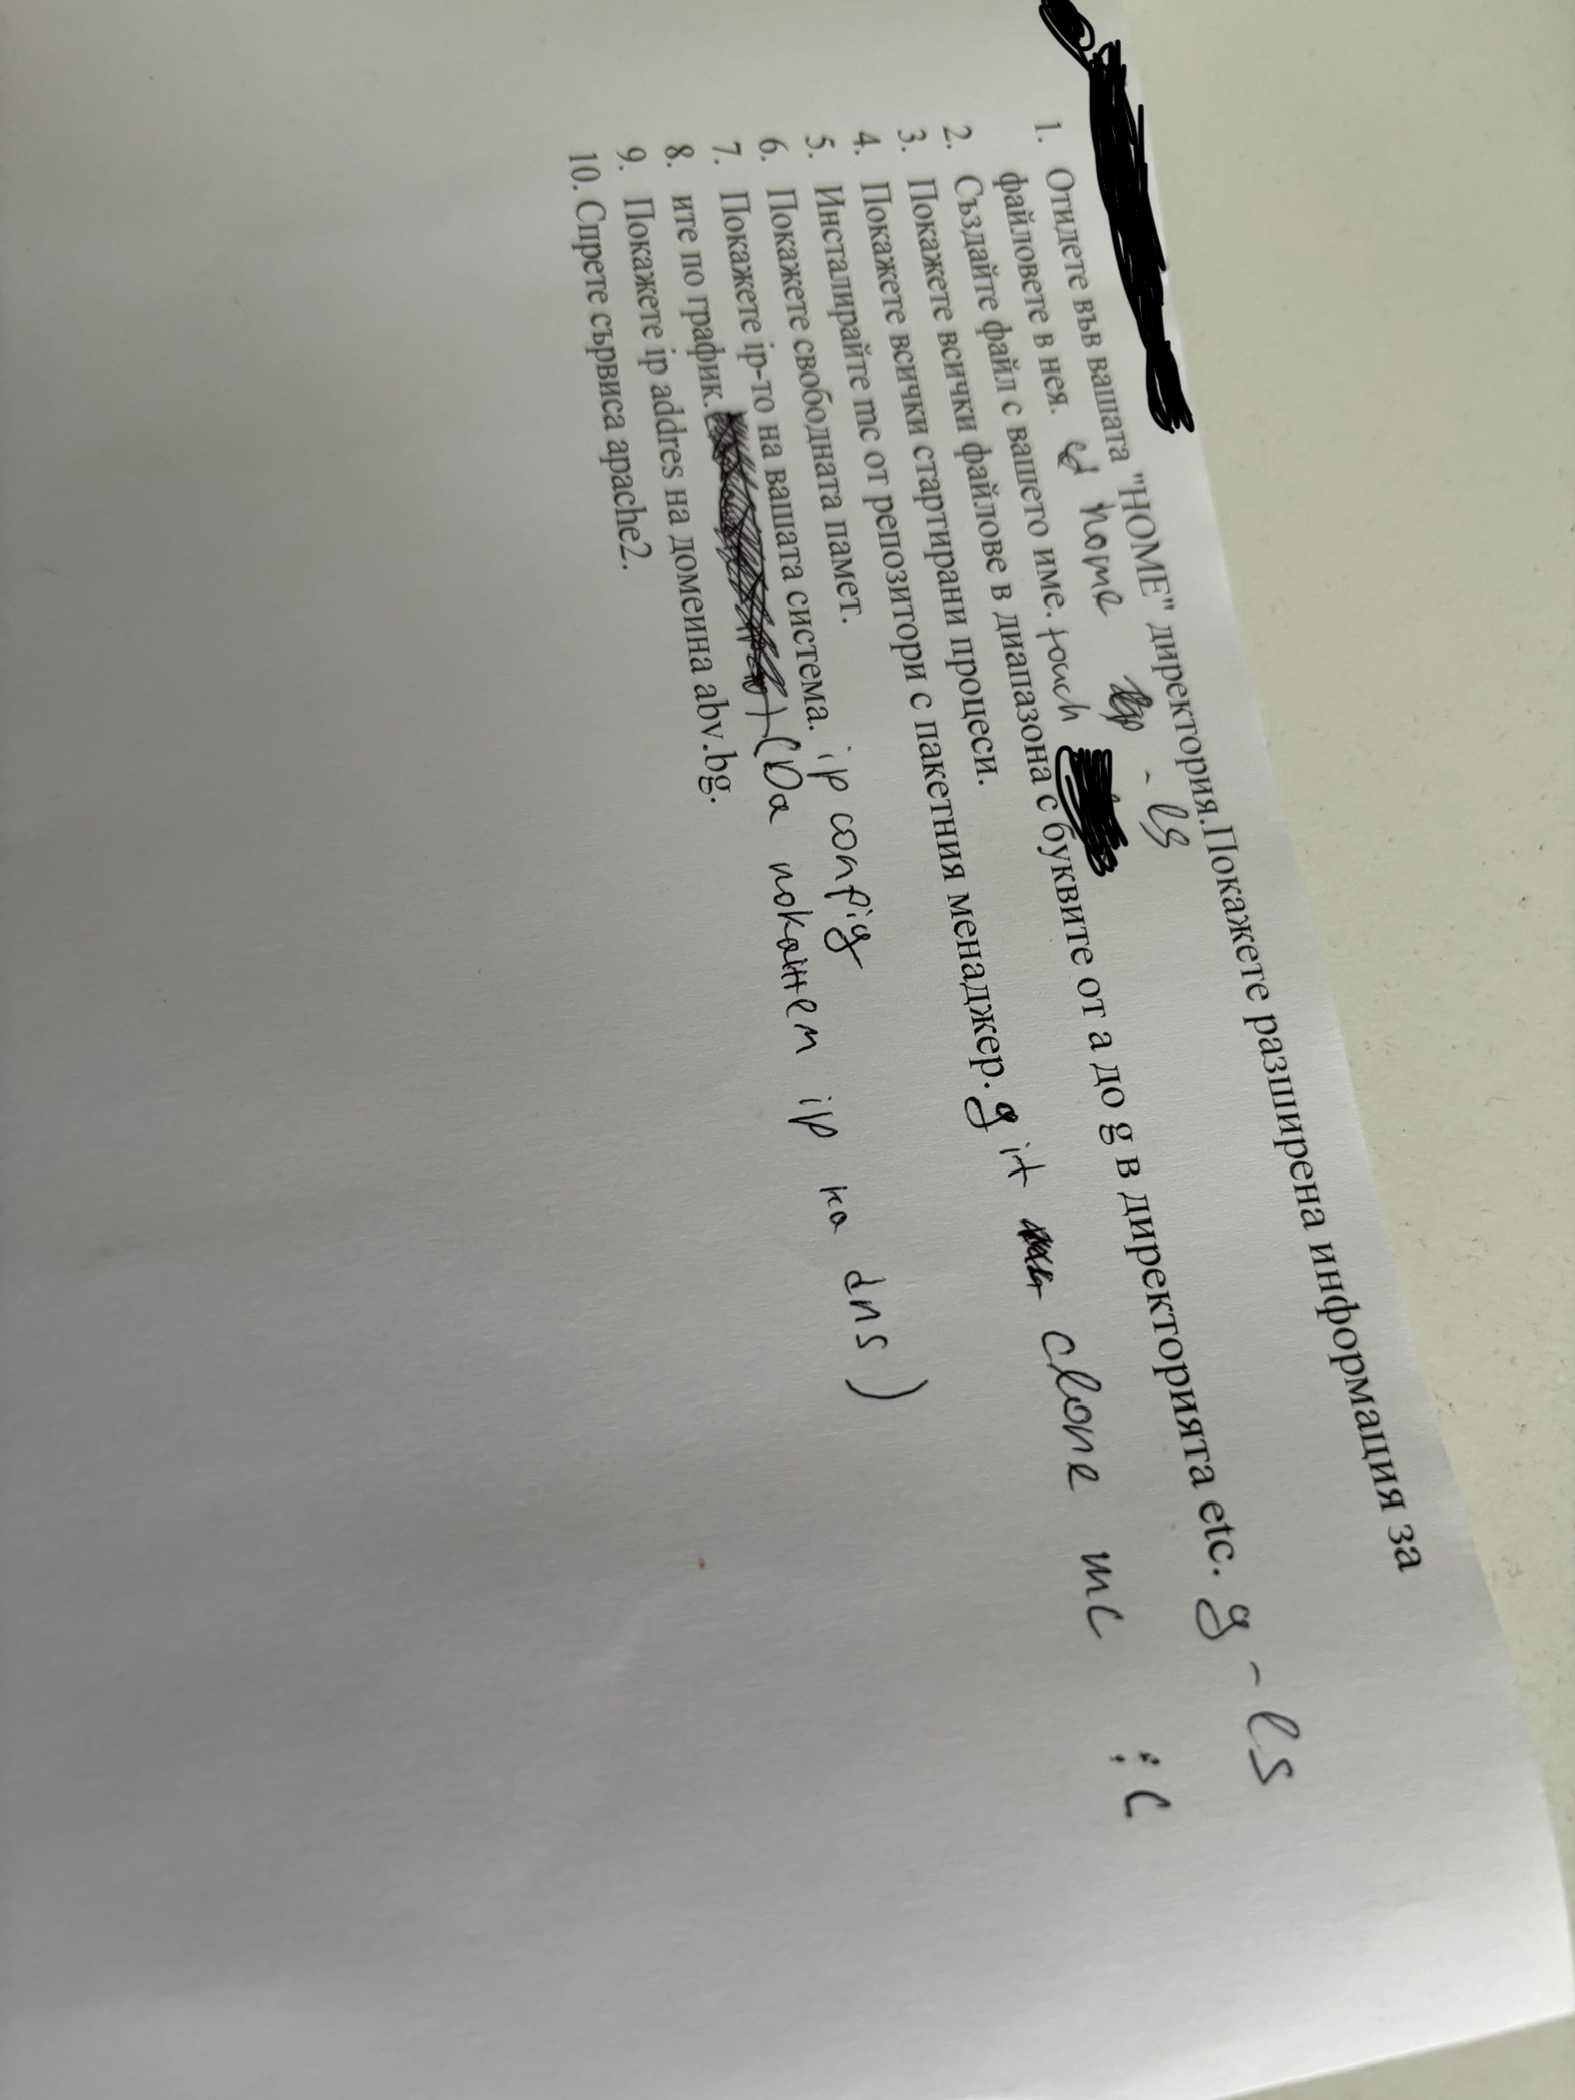 1. Отидете във вашата "HOME" директория.Покажете разширена информация за
файловете в нея. cd home - ls
2. Създайте файл с вашето име. touch
3. Покажете всички файлове в диапазона с буквите от a до g в директорията etc. g - ls
4. Покажете всички стартирани процеси.
5. Инсталирайте mc от репозитори с пакетния менаджер. git clone mc :c
6. Покажете свободната памет.
7. Покажете ip-то на вашата система. ip config
8. ите по график. (Да покажем ip на dns)
9. Покажете ip addres на домеина abv.bg.
10. Спрете сървиса apache2.